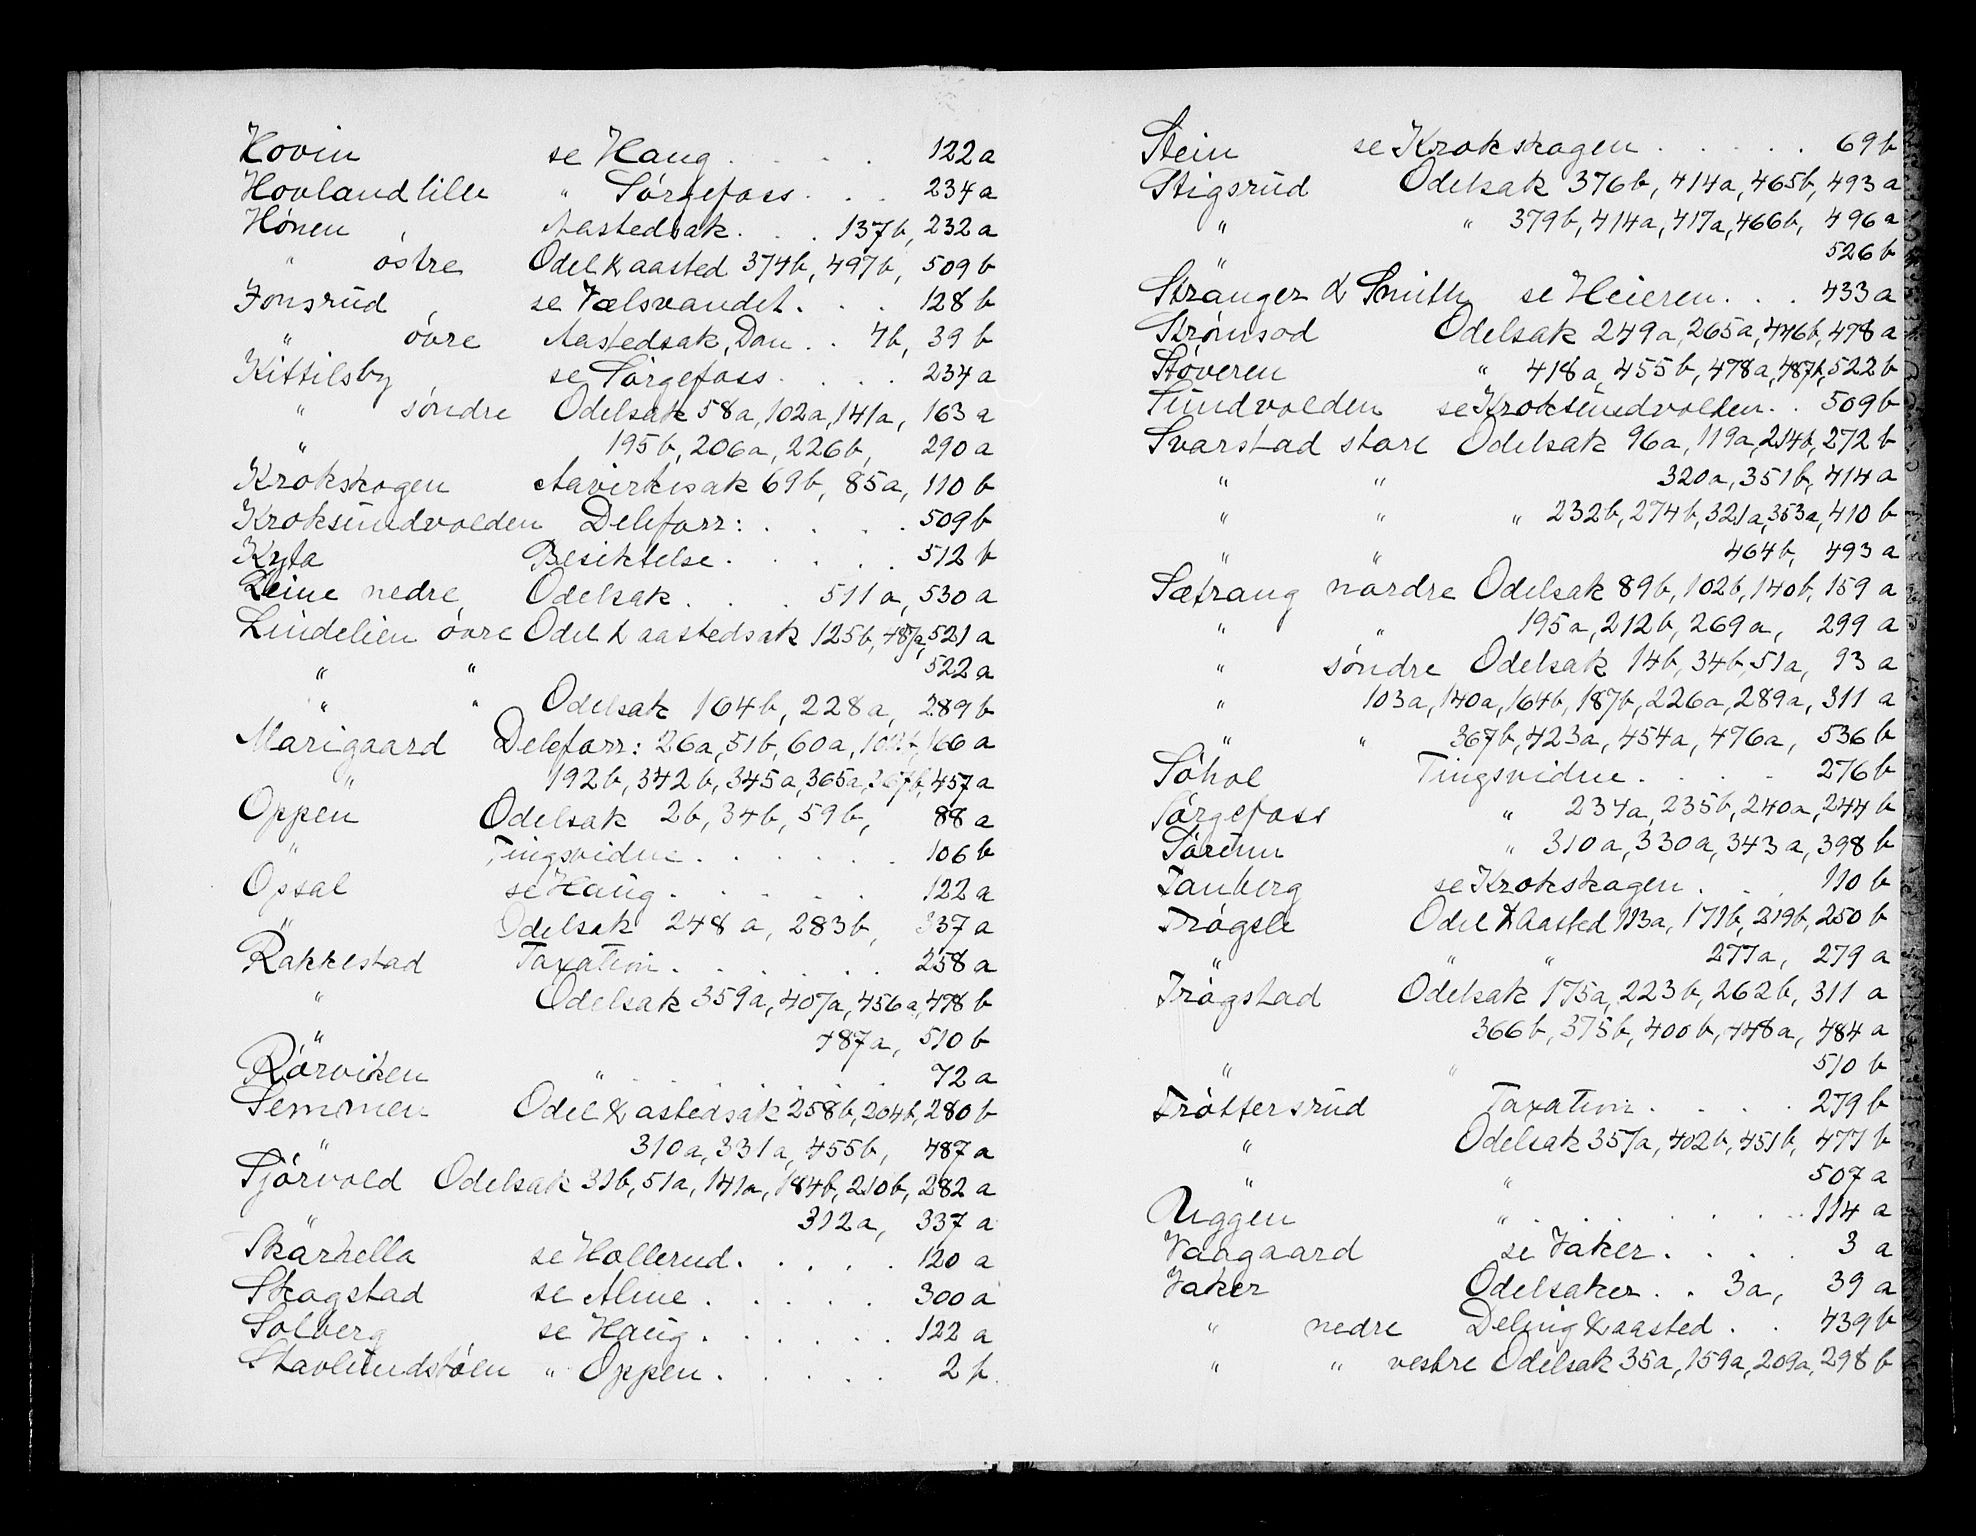 Hovin se Haug . . . . 122 a
Hovland lille " Sørgefoss . . . 234 a
Hønen , Aastedsak . . . 137 b, 232 a
" østre Odel & aasted 374 b, 497 b, 509 b
Jonsrud , se Vælsvandet . . . 128 b
" øvre Aastedsak, Dan . . 4 b, 39 b
Kittilsby , se Sørgefoss . . . . 234 a
" søndre Odelsak 58 a, 102 a, 141 a, 163 a
" 195 b, 206 a, 226 b, 290 a
Krokskogen Aavirkesak 69 b, 85 a, 110 b
Kroksundvolden Deleforr: . . . . 509 b
Kyta Besiktelse . . . . . 512 b
Leine nedre, Odelsak . . . 511 a, 530 a
Lindelien øvre Odel & aastedsak 125 b, 487 a, 521 a
" " 522 a
" " Odelsak 164 b, 228 a, 289 b
Marigaard Deleforr: 26 a, 51 b, 60 a, 102 b, 166 a
" 192 b, 342 b, 345 a, 365 a, 367 b, 457 a
Oppen Odelsak 2 b, 34 b, 59 b, 88 a
" Tingsvidne . . . . . . 106 b
Opsal se Haug . . . . . 122 a
" Odelsak 248 a, 283 b, 337 a
Rakkestad Taxation . . . . . . 258 a
" Odelsak 359 a, 407 a, 456 a, 478 b
" 487 a, 510 b
Rørviken " . . . . . . 72 a
Semmen Odel & astedsak 258 b, 204 b, 280 b
" 310 a, 331 a, 455 b, 487 a
Sjørvold Odelsak 31 b, 51 a, 141 a, 184 b, 210 b, 282 a
" 312 a, 337 a
Skårhella se Hollerud . . . . . 120 a
Skogstad se Alme . . . . . 300 a
Solberg , se Haug . . . . . . 122 a
Stavlundstøen " Oppen . . . . . 2 b.
Stein se Krokskogen . . . . . 69 b
Stigsrud Odelsak 376 b, 414 a, 465 b, 493 a
" " 379 b, 414 a, 417 a, 466 b, 496 a
" 526 b
Stranger & Smith se Heieren . . . 433 a
Strømsod Odelsak 249 a, 265 a, 446 b, 478 a
Støveren " 418 a, 455 b, 478 a, 487 b, 522 b
Sundvolden se Kroksundvolden . . 509 b
Svarstad store Odelsak 96 a, 119 a, 214 b, 272 b
" " 320 a, 351 b, 414 a
" " " 232 b, 274 b, 321 a, 353 a, 410 b
" " 464 b, 493 a
Sætrang nordre Odelsak 89 b, 102 b, 140 b, 159 a
" " 195 a, 212 b, 269 a, 299 a
" søndre Odelsak 14 b, 34 b, 51 a, 93 a
" 103 a, 140 a, 164 b, 187 b, 226 a, 289 a, 311 a
" " 367 b, 423 a, 454 a, 476 a, 536 b
Søhol Tingsvidne . . . . 276 b
Sørgefoss " 234 a, 235 b, 240 a, 244 b
Sørum " 310 a, 330 a, 343 a, 398 b
Tanberg se Krokskogen . . . 110 b
Trøgsle Odel & Aasted 113 a, 171 b, 219 b, 250 b
" " " 277 a, 279 a
Trøgstad Odelsak 175 a, 223 b, 262 b, 311 a
" 366 b, 375 b, 400 b, 448 a, 484 a
" " 510 b
Trøttersrud Taxation . . . . 279 b
" Odelsak 357 a, 402 b, 451 b, 477 b
" " 507 a
Uggen " . . . . . . . . 114 a
Vaagaard se Vaker . . . . 3 a
Vaker Odelsaker . . 3 a, 39 a
" nedre Deling & aasted . . 439 b
" " vestre Odelsak 35 a, 159 a, 209 a, 298 b